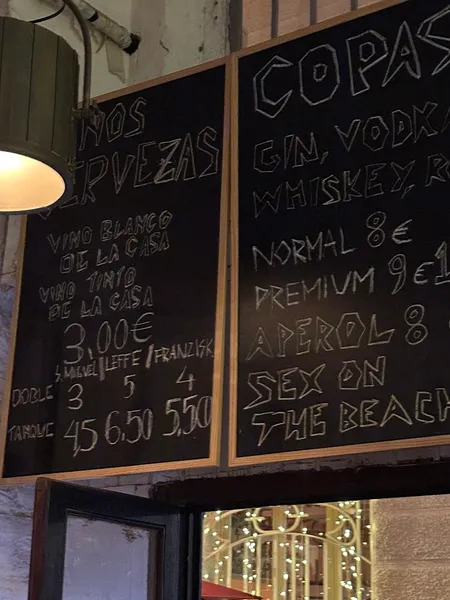 NOS
ERVEZAS
VINO BLANCO
DE LA CASA
VINO TINTO
DE LA CASA
3,00€
S.MIGUEL/LEFFE/FRANZISK
DOBLE 3 5 4
TANQUE 45 6.50 5.50
COPAS
GIN, VODKA
WHISKEY, R
NORMAL 8€
PREMIUM 9€1
APEROL 8
SEX ON
THE BEACH